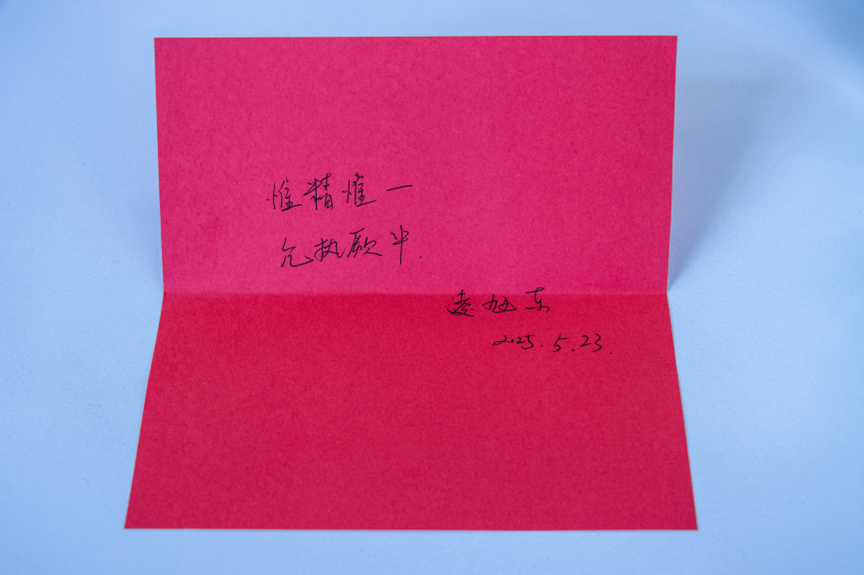 惟精惟一
允执厥中.
凌旭东
2025.5.23.